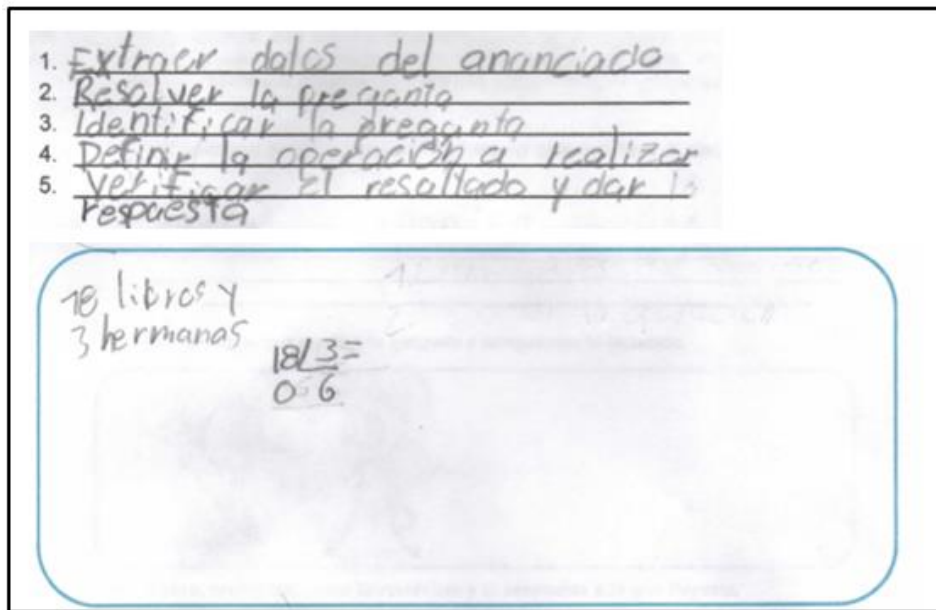 1. Extraer datos del ananciado
2. Resolver la preganta
3. Identificar la preganta
4. Definir la operación a realizar
5. Verificar el resaltado y dar la
respuesta
18 libros y
3 hermanas
18 3=
0 6